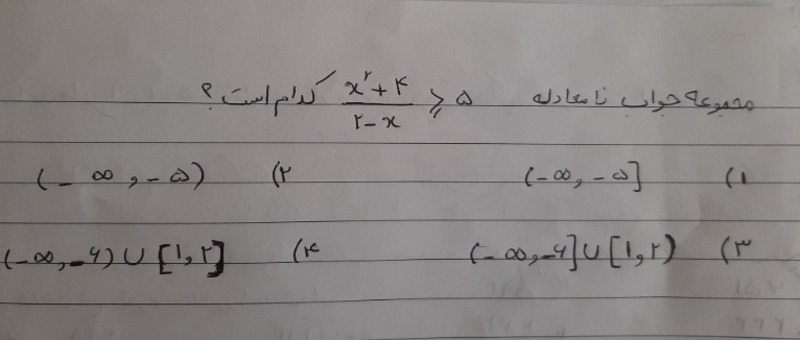 مجموعه جواب نامعادله (x^۲+۴)/(۲-x) ≥ ۵ کدام است؟
۱) (-∞, -۵]
۲) (-∞, -۵)
۳) (-∞, -۶] ∪ [۱, ۲)
۴) (-∞, -۶) ∪ [۱, ۲]